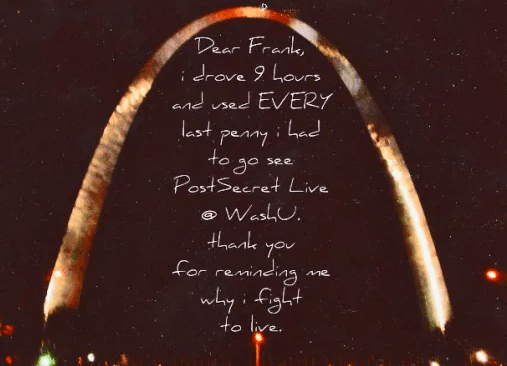 Dear Frank,
i drove 9 hours
and used EVERY
last penny i had
to go see
PostSecret Live
@ WashU.
thank you
for reminding me
why i fight
to live.